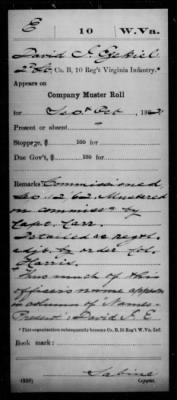 E 10 W.Va.
David J. Ezekiel
2 Lt., Co. B, 10 Reg't Virginia Infantry.*
Appears on
Company Muster Roll
for Sept & Oct, 1862.
Present or absent
Stoppage, $ 100 for
Due Gov't, $ 100 for
Remarks: Commissioned
Sep. 12, 62. Mustered
on commission by
Capt. Carr.
Detailed as regt.
adjt. by order Col.
Harris.
Thus much of this
officer's name appears
in column of Names
Present: David J. E
* This organization subsequently became Co. B, 10 Reg't W. Va. Inf.
Book mark:
Sabine
(358) Copyist.